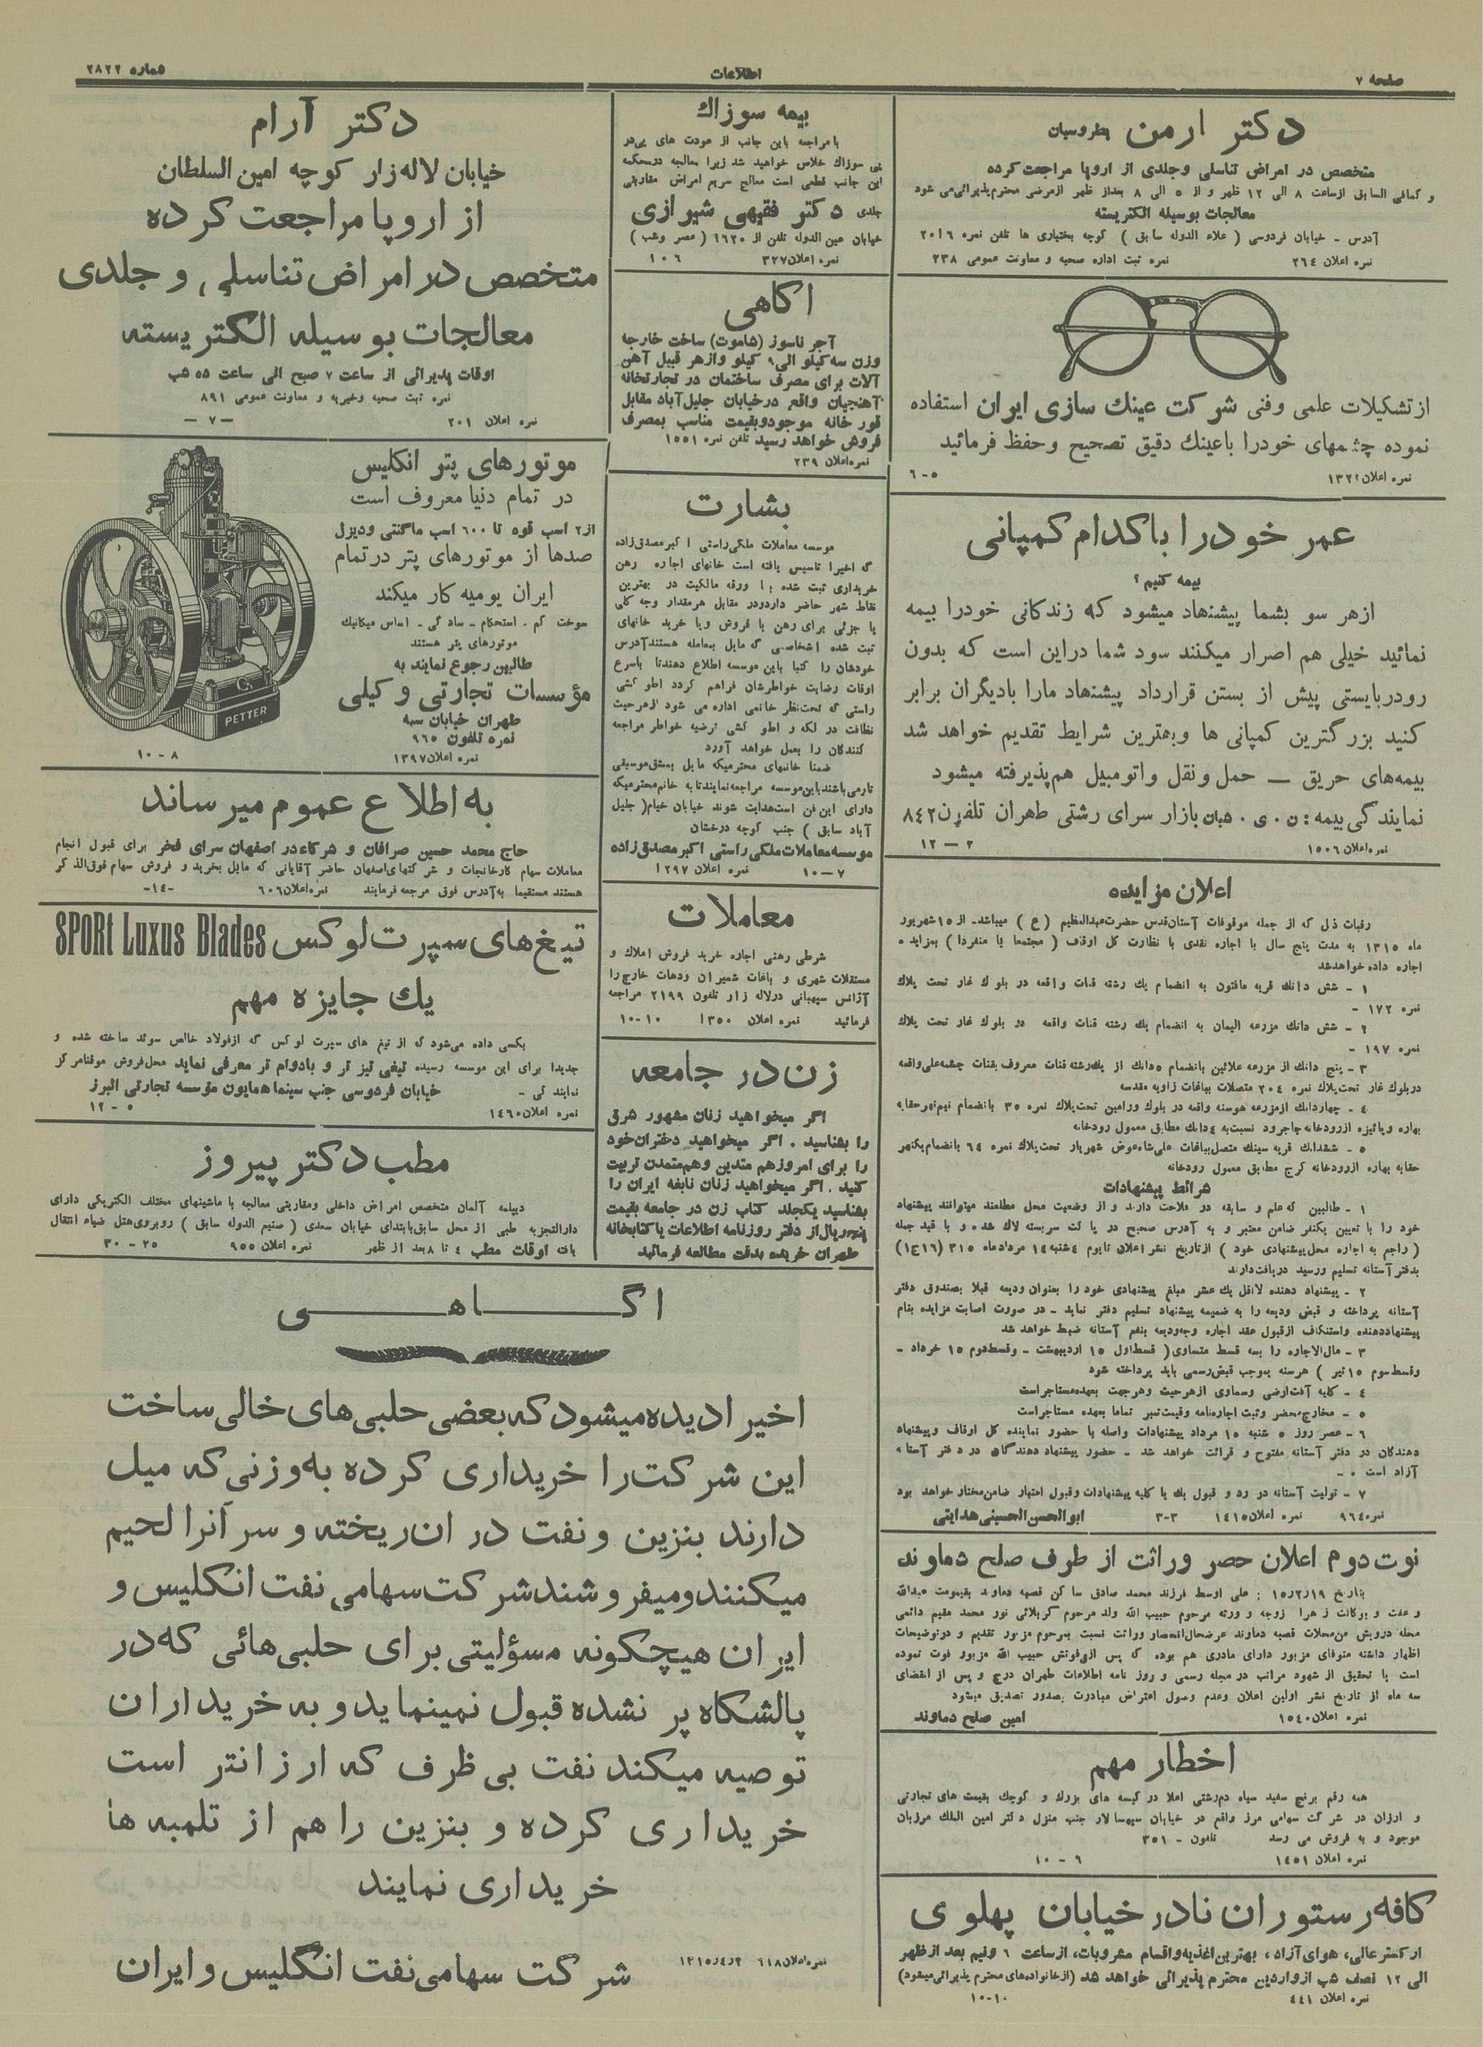 صفحه ۷
اطلاعات
شماره ۲۸۲۲
دکتر ارمن بطروسیان
متخصص در امراض تناسلی وجلدی از اروپا مراجعت کرده
و کمافی السابق ازساعت ۸ الی ۱۲ ظهر و از ۵ الی ۸ بعداز ظهر ازمرضی محترم پذیرائی می شود
معالجات بوسیله الکتریسته
آدرس - خیابان فردوسی ( علاء الدوله سابق ) کوچه بختیاری ها تلفن نمره ۲۰۱۶
نمره اعلان ۲۶۴ نمره ثبت اداره صحیه و معاونت عمومی ۲۳۸
از تشکیلات علمی وفنی شرکت عینك سازی ایران استفاده
نموده چشمهای خودرا باعینك دقیق تصحیح وحفظ فرمائید
نمره اعلان ۱۳۲۱ ۵-۶
عمر خودرا باکدام کمپانی
بیمه کنیم ؟
ازهر سو بشما پیشنهاد میشود که زندکانی خودرا بیمه
نمائید خیلی هم اصرار میکنند سود شما دراین است که بدون
رودربایستی پیش از بستن قرارداد پیشنهاد مارا بادیگران برابر
کنید بزرگترین کمپانی ها وبهترین شرایط تقدیم خواهد شد
بیمه‌های حریق — حمل ونقل واتومبیل هم پذیرفته میشود
نمایندگی بیمه : ن . ی . شبان بازار سرای رشتی طهران تلفن ۸۴۲
نمره اعلان ۱۵۰۶ ۲ - ۱۲
اعلان مزایده
رقبات ذیل که از جمله موقوفات آستان قدس حضرت عبدالعظیم ( ع ) میباشد از ۱۵ شهریور
ماه ۱۳۱۵ به مدت پنج سال با اجاره نقدی با نظارت کل اوقاف ( مجتمعا یا منفردا ) بمزایده
اجاره داده خواهد شد
۱ - شش دانك قریه مافتون به انضمام یك رشته قنات واقعه در بلوك غار تحت پلاك
نمره ۱۷۲ -
۲ - شش دانك مزرعه الیمان به انضمام یك رشته قنات واقعه در بلوك غار تحت پلاك
نمره ۱۹۷ -
۳ - پنج دانك از مزرعه علائین بانضمام ۵دانك از یك رشته قنات معروف بقنات چشمه علی واقعه
در بلوك غار تحت پلاك نمره ۲۰۴ متصلات بباغات زاویه مقدسه
۴ - چهاردانك ازمزرعه هوسنه واقعه در بلوك ورامین تحت پلاك نمره ۳۵ بانضمام نیم نهر حقابه
بهاره وپائیزه ازرودخانه جاجرود نسبت به ۴دانك مطابق معمول رودخانه
۵ - ششدانك قریه سینك متصل بباغات علی شاه عوض شهریار تحت پلاك نمره ۶۴ بانضمام یکنهر
حقابه بهاره ازرودخانه کرج مطابق معمول رودخانه
شرائط پیشنهادات
۱ - طالبین که علم و سابقه در فلاحت دارند و از وضعیت محل مطلعند میتوانند پیشنهاد
خود را با تعیین یکنفر ضامن معتبر و به آدرس صحیح در پاکت سربسته لاك شده و با قید جمله
( راجع به اجاره محل پیشنهادی خود ) ازتاریخ نشر اعلان تایوم ۴شنبه ۱۴ مرداد ماه ۳۱۵
بدفتر آستانه تسلیم ورسید دریافت دارند
۲ - پیشنهاد دهنده لااقل یك عشر مبلغ پیشنهادی خود را بعنوان ودیعه قبلا بصندوق دفتر
آستانه پرداخته و قبض ودیعه را به ضمیمه پیشنهاد تسلیم دفتر نماید - در صورت اصابت مزایده بنام
پیشنهاد دهنده واستنکاف ازقبول عقد اجاره وجه ودیعه بنفع آستانه ضبط خواهد شد
۳ - مال الاجاره را بسه قسط متساوی ( قسط اول ۱۵ اردیبهشت - وقسط دوم ۱۵ خرداد -
وقسط سوم ۱۵ تیر ) هرسنه بموجب قبض رسمی باید پرداخته شود
۴ - کلیه آفت ارضی وسماوی ازهرحیث وهرجهت بعهده مستاجر است
۵ - مخارج محضر وثبت اجاره نامه وقیمت تمبر تماما بعهده مستاجر است
۶ - عصر روز ۵ شنبه ۱۵ مرداد پیشنهادات واصله با حضور نماینده کل اوقاف و پیشنهاد
دهندگان در دفتر آستانه مفتوح و قرائت خواهد شد - حضور پیشنهاد دهندگان در دفتر آستانه
آزاد است . -
۷ - تولیت آستانه در رد و قبول یك یا کلیه پیشنهادات وقبول اعتبار ضامن مختار خواهد بود
نمره ۹۶۴۰ نمره اعلان ۱۴۱۵ ۳-۳ ابوالحسن الحسینی هدایتی
نوبت دوم اعلان حصر وراثت از طرف صلح دماوند
بتاریخ ۱۵/۲/۱۹ : علی اوسط فرزند محمد صادق ساکن قصبه دماوند بقیمومت عبدالله
و عفت و بوکالت زهرا زوجه و ورثه مرحوم حبیب الله ولد مرحوم کربلائی نور محمد مقیم دائمی
محله درویش من محلات قصبه دماوند عرضحال انحصار وراثت نسبت بمرحوم مزبور تقدیم و درتوضیحات
اظهار داشته متوفای مزبور دارای مادری هم بوده که پس ازفوتش حبیب الله مزبور فوت نموده
است با تحقیق از شهود مراتب در مجله رسمی و روز نامه اطلاعات طهران درج و پس از انقضای
سه ماه از تاریخ نشر اولین اعلان وعدم وصول اعتراض مبادرت بصدور تصدیق میشود
نمره اعلان ۱۵۴۰ امین صلح دماوند
اخطار مهم
همه رقم برنج سفید سیاه دم رشتی اعلا در کیسه های بزرك و کوچك بقیمت های تجارتی
و ارزان در شرکت سهامی مرز واقع در خیابان سپهسالار جنب منزل دکتر امین الملك مرزبان
موجود و به فروش می رسد تلفون - ۳۵۱
نمره اعلان ۱۴۵۱ ۶ - ۱۰
کافه رستوران نادر خیابان پهلوی
ارکستر عالی، هوای آزاد، بهترین اغذیه واقسام مشروبات، ازساعت ۶ ونیم بعد ازظهر
الی ۱۲ نصف شب از واردین محترم پذیرائی خواهد شد (از خانواده‌های محترم پذیرائی میشود)
نمره اعلان ۴۴۱ ۱۰-۱۰
بیمه سوزاك
بامراجعه باین جانب از عودت های پی در
پی سوزاك خلاص خواهید شد زیرا معالجه درمحکمه
این جانب قطعی است معالج سریع امراض مقاربتی
جلدی دکتر فقیهی شیرازی
خیابان عین الدوله تلفن از ۱۶۲۰ ( عصر وشب )
نمره اعلان ۳۲۷ ۱۰۶
آگاهی
آجر ناسوز (شاموت) ساخت خارجه
وزن سه کیلو الی ۹ کیلو وازهر قبیل آهن
آلات برای مصرف ساختمان در تجارتخانه
آهنچیان واقع درخیابان جلیل آباد مقابل
قورخانه موجود وبقیمت مناسب بمصرف
فروش خواهد رسید تلفن نمره ۱۵۵۱
نمره اعلان ۲۳۹
بشارت
موسسه معاملات ملکی راستی اکبر مصدق زاده
که اخیرا تاسیس یافته است خانهای اجاره رهن
خریداری ثبت شده با ورقه مالکیت در بهترین
نقاط شهر حاضر دارد و در مقابل هرمقدار وجه کلی
یا جزئی برای رهن یا فروش ویا خرید خانهای
ثبت شده اشخاصی که مایل بمعامله هستند آدرس
خودشان را کتبا باین موسسه اطلاع دهند تا باسرع
اوقات رضایت خواطرشان فراهم گردد اطو کشی
راستی که تحت نظر خانمی اداره می شود ازهرحیث
نظافت در لکه و اطو کشی ترضیه خواطر مراجعه
کنندگان را بعمل خواهد آورد
ضمنا خانمهای محترمیکه مایل بمشق موسیقی
تار می باشند باین موسسه مراجعه نمایند تا به خانم محترمیکه
دارای این فن است هدایت شوند خیابان خیام ( جلیل
آباد سابق ) جنب کوچه درخشان
موسسه معاملات ملکی راستی اکبر مصدق زاده
نمره اعلان ۱۲۹۷ ۷-۱۰
معاملات
شرطی رهنی اجاره خرید فروش املاك و
مستغلات شهری و باغات شمیران ودهات خارج را
آژانس سیهبانی درلاله زار تلفون ۲۱۹۹ مراجعه
فرمائید نمره اعلان ۱۳۵۰ ۱۰-۱۰
زن در جامعه
اگر میخواهید زنان مشهور شرق
را بشناسید . اگر میخواهید دختران خود
را برای امروز هم متدین وهم متمدن تربیت
کنید . اگر میخواهید زنان نابغه ایران را
بشناسید یکجلد کتاب زن در جامعه بقیمت
پنجریال از دفتر روزنامه اطلاعات یا کتابخانه
طهران خریده بدقت مطالعه فرمائید
دکتر آرام
خیابان لاله زار کوچه امین السلطان
از اروپا مراجعت کرده
متخصص در امراض تناسلی وجلدی
معالجات بوسیله الکتریسته
اوقات پذیرائی از ساعت ۷ صبح الی ساعت ده شب
نمره ثبت صحیه وخیریه و معاونت عمومی ۸۹۱
نمره اعلان ۲۰۱ -۷-
موتورهای پتر انگلیس
در تمام دنیا معروف است
از ۲ اسب قوه تا ۶۰۰ اسب ماگنتی ودیزل
صدها از موتورهای پتر درتمام
ایران یومیه کار میکند
سوخت کم . استحکام - سادگی - اساس میکانیك
موتورهای پتر هستند
طالبین رجوع نمایند به
مؤسسات تجارتی وکیلی
طهران خیابان سپه
نمره تلفون ۹۶۵
نمره اعلان ۱۳۹۷ ۸ - ۱۰
PETTER
به اطلاع عموم میرساند
حاج محمد حسین صرافان و شرکاء در اصفهان سرای فخر برای قبول انجام
معاملات سهام کارخانجات و شرکتهای اصفهان حاضر آقایانی که مایل بخرید و فروش سهام فوق الذکر
هستند مستقیما به آدرس فوق مرجعه فرمایند نمره اعلان ۶۰۶ -۱۴-
تیغ‌های سپرت لوکس SPORt Luxus Blades
یك جایزه مهم
بکسی داده می‌شود که از تیغ های سپرت لوکس که ازفولاد خالص سوئد ساخته شده و
جدیدا برای این موسسه رسیده تیغی تیز تر و بادوام تر معرفی نماید محل فروش موقتا مرکز
نمایندگی - خیابان فردوسی جنب سینما همایون مؤسسه تجارتی البرز
نمره اعلان ۱۴۶۰ ۵ - ۱۲
مطب دکتر پیروز
دیپلمه آلمان متخصص امراض داخلی ومقاربتی معالجه با ماشینهای مختلف الکتریکی دارای
دارالتجزیه طبی از محل سابق بابتدای خیابان سعدی ( صنیع الدوله سابق ) روبروی هتل ضیاء انتقال
یافته اوقات مطب ۴ تا ۸ بعد از ظهر نمره اعلان ۹۵۵ ۲۵ - ۳۰
اگــــاهــــی
اخیرا دیده میشود که بعضی حلبی های خالی ساخت
این شرکت را خریداری کرده به وزنی که میل
دارند بنزین ونفت در ان ریخته و سر آنرا لحیم
میکنند ومیفروشند شرکت سهامی نفت انگلیس و
ایران هیچگونه مسؤلیتی برای حلبی هائی که در
پالشگاه پر نشده قبول نمینماید و به خریداران
توصیه میکند نفت بی ظرف که ارزانتر است
خریداری کرده و بنزین را هم از تلمبه ها
خریداری نمایند
نمره اعلان ۶۱۸ ۱۳۱۵/۴/۲
شرکت سهامی نفت انگلیس و ایران